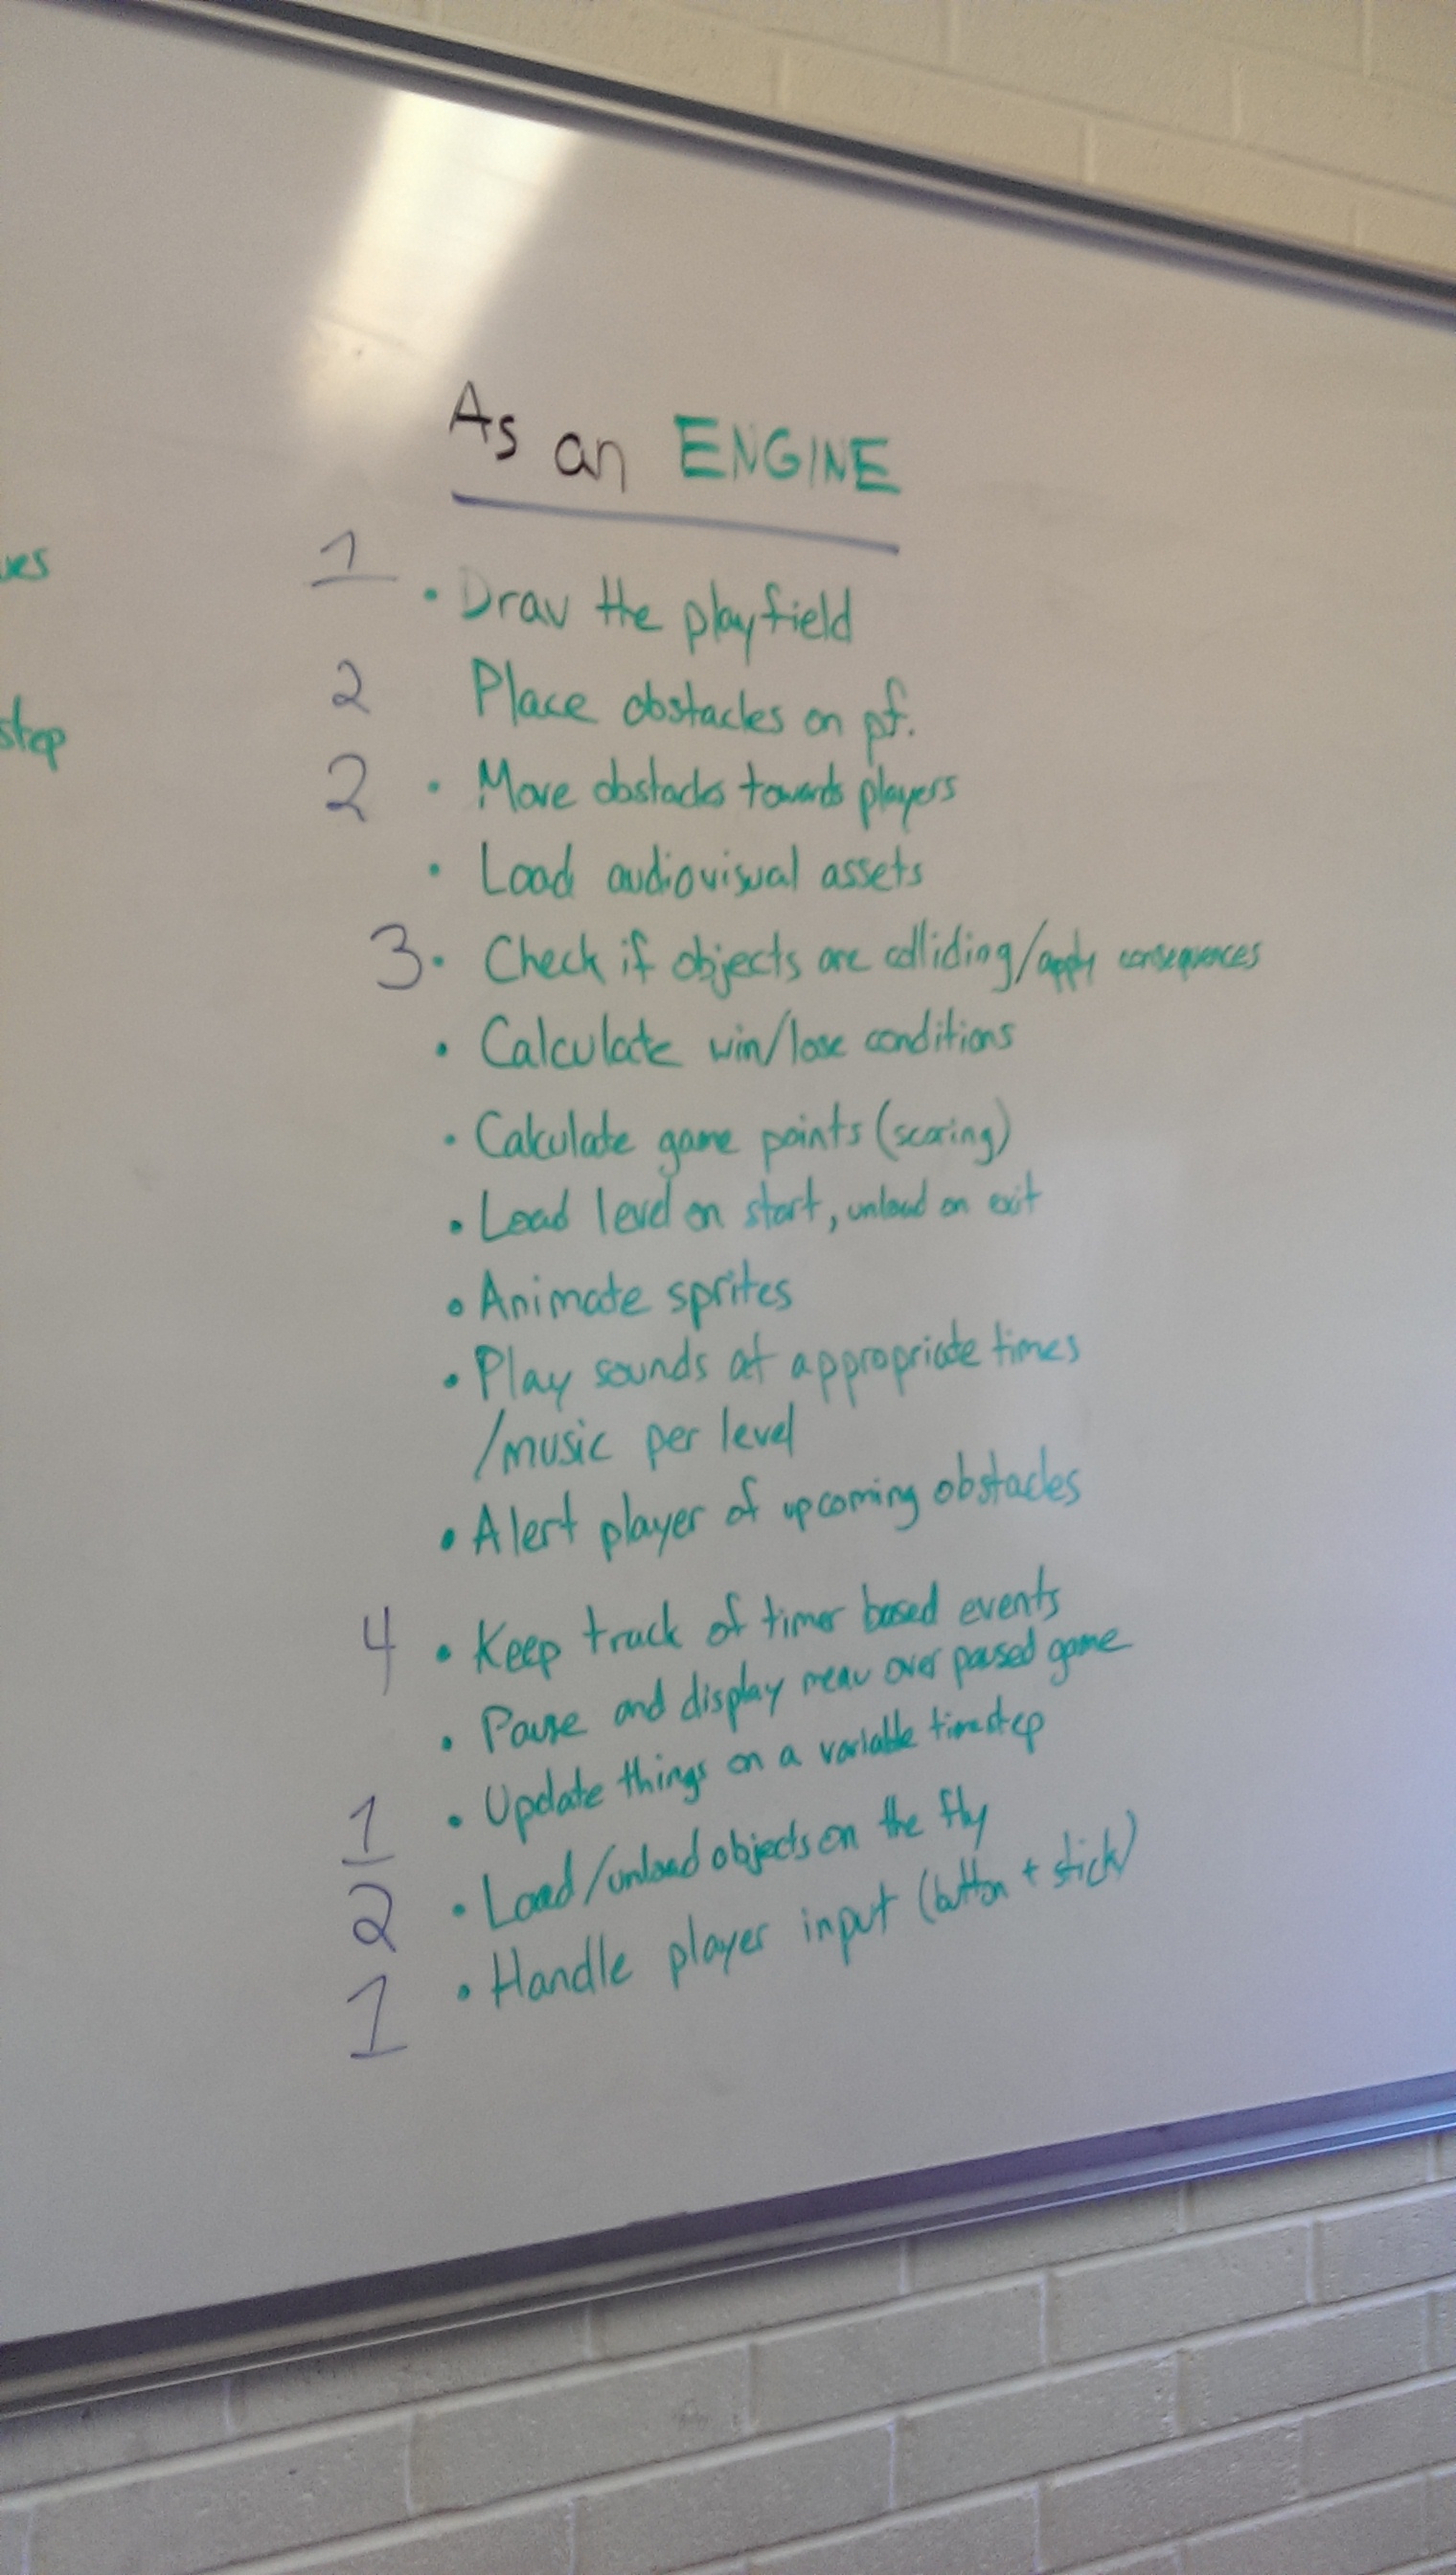 As an ENGINE
1 • Draw the playfield
2 Place obstacles on pf.
2 • Move obstacles towards players
• Load audiovisual assets
3 • Check if objects are colliding/apply consequences
• Calculate win/lose conditions
• Calculate game points (scoring)
• Load level on start, unload on exit
• Animate sprites
• Play sounds at appropriate times
/music per level
• Alert player of upcoming obstacles
4 • Keep track of timer based events
• Pause and display menu over paused game
1 • Update things on a variable timestep
2 • Load/unload objects on the fly
1 • Handle player input (button + stick)
ues
step